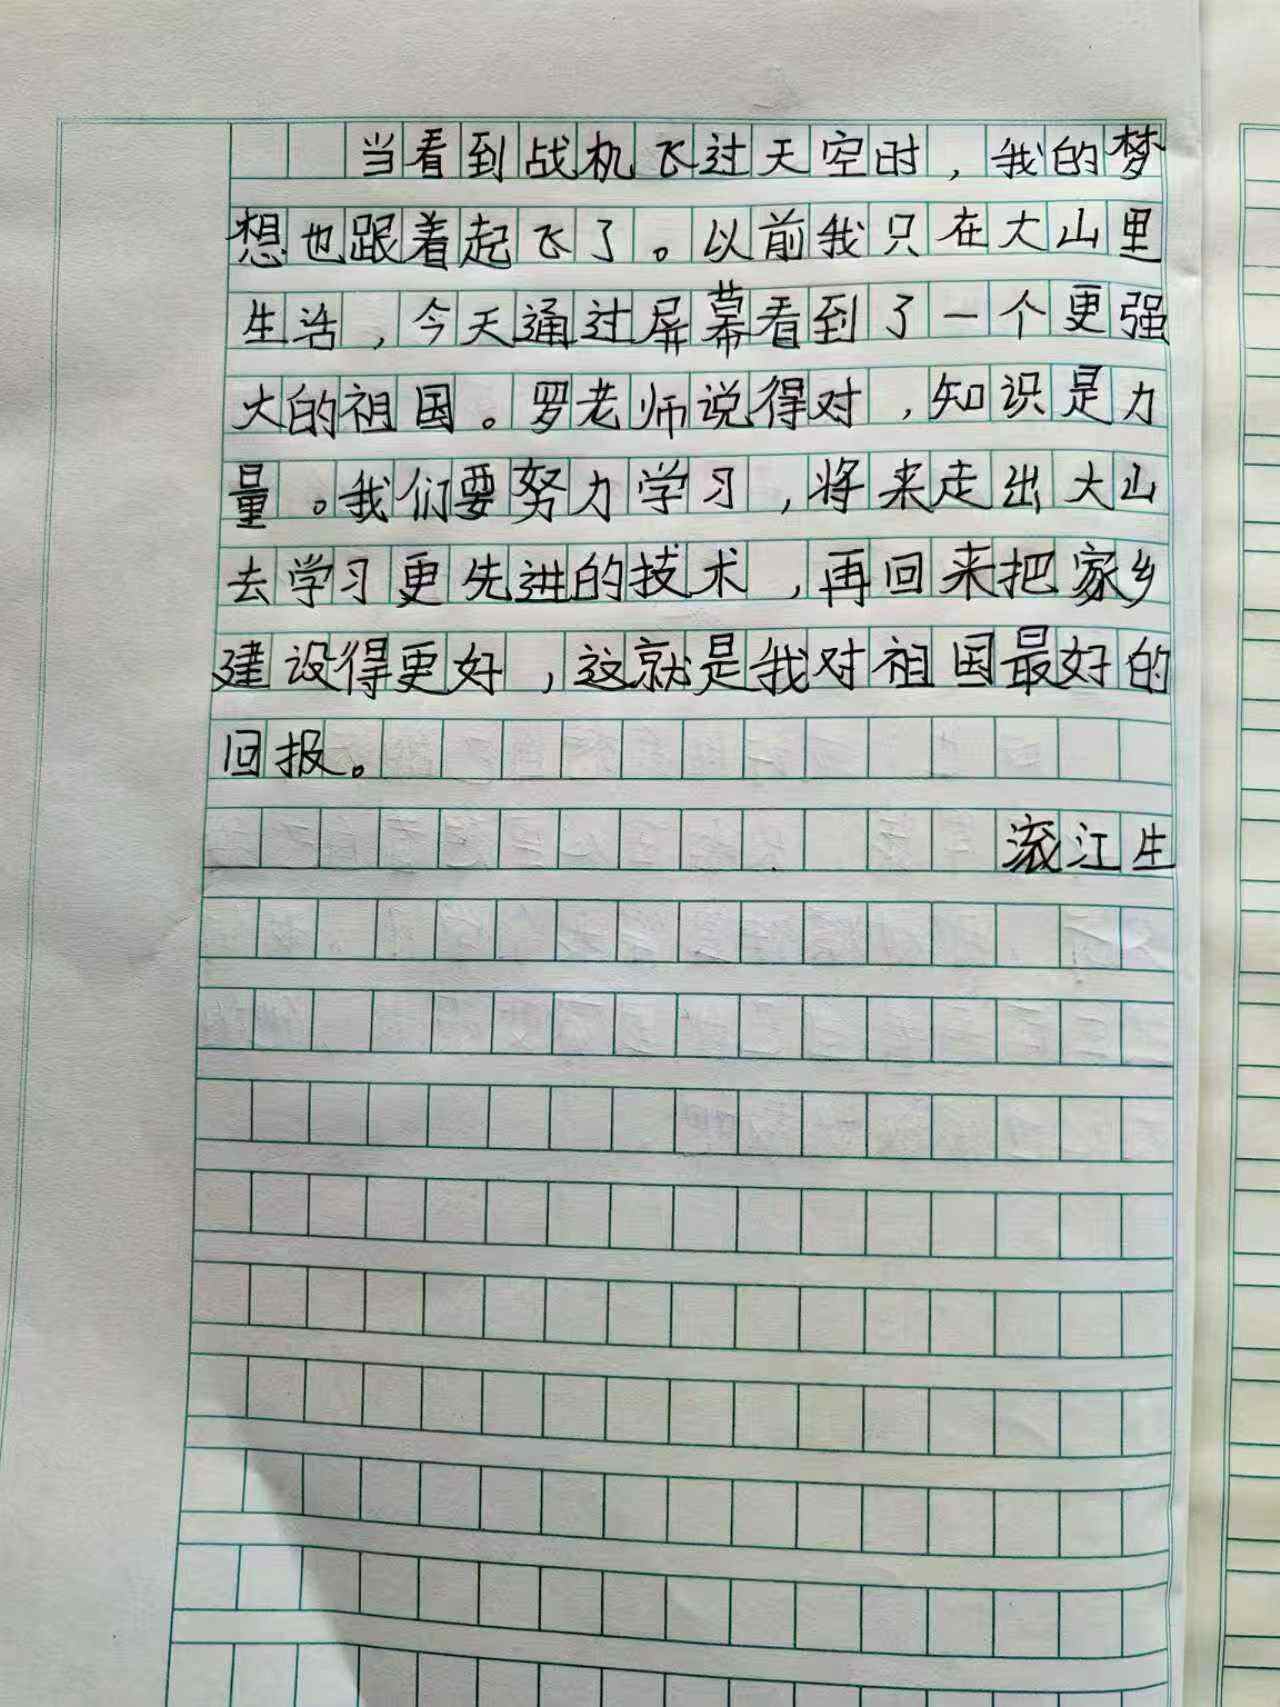 当看到战机飞过天空时，我的梦
想也跟着起飞了。以前我只在大山里
生活，今天通过屏幕看到了一个更强
大的祖国。罗老师说得对，知识是力
量。我们要努力学习，将来走出大山
去学习更先进的技术，再回来把家乡
建设得更好，这就是我对祖国最好的
回报。
滚江生